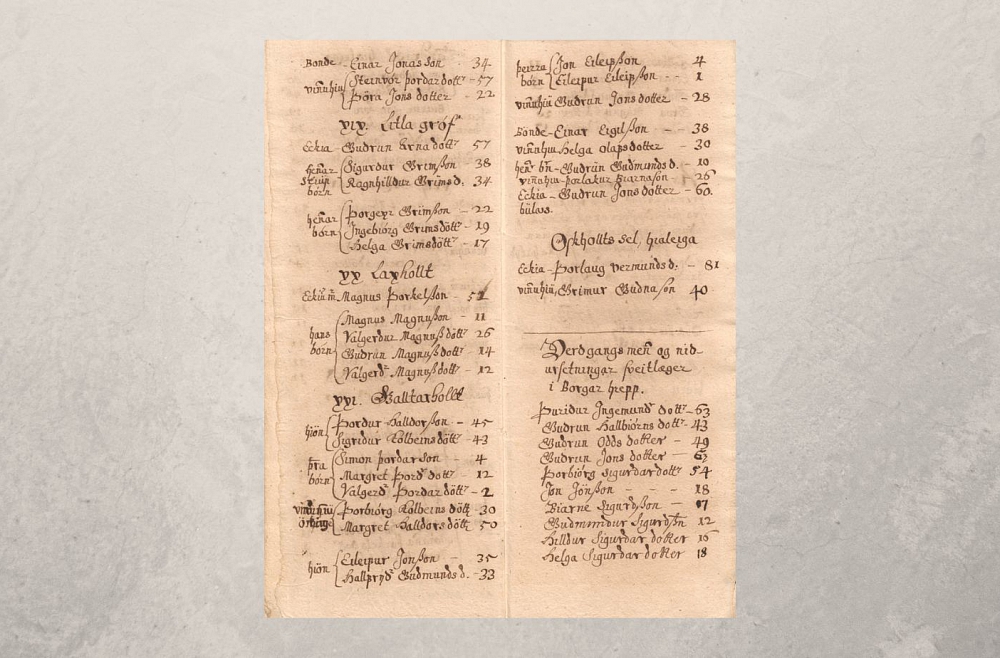 Bonde - Einar Jonas son - 34
vinnuhiu Steinvör þordar dotť - 57
Þöra Jons dotter - 22
xix. Litla gröf
Eckia - Gudrun Arna dotť 57
hennar Sigurdur Grimsson 38
börn Ragnhilldur Grims d. 34
hennar Þorgeyr Grimsson - 22
börn Ingebiörg Grimsdötť - 19
Helga Grimsdötť - 17
xx Laxhollt
Magnus Þorkelsson -
hans Magnus Magnusson - 11
börn Valgerdur Magnusdötť 26
Gudrun Magnusdötť - 14
Valgerd Magnusdötť - 12
xxi. Galltarhollt
hiön Þordur Halldorsson - 45
Sigridur Kolbeinsdött - 43
þra Simon þordar son - 4
börn Margret Þord dotť 12
Valgerd Þordar dötť - 2
Þorbiörg Kolbeins dött - 30
Margret Halldors dött 50
hiön Eileipur Jonsson - 35
Gudmunds d. - 33
þeirra Jon Eileipsson - 4
börn Eileipur Eileipsson - - 1
vinnuhiu Gudrun Jons dotter - 28
Bonde - Einar Eigilsson - 38
vinnuhiu Helga Olaps dotter - 30
heñ bn - Gudrun Gudmunds d. - 10
vinnuhiu - þorlakur Biarnason - 26
Eckia - Gudrun Jons dotter - 60.
bülaus.
Opkhollts sel, hialeiga
Eckia - Þorlaug vermunds d. - 81
vinnuhiu, Grimur Gudnason 40
Verdgangs meñ og nid-
ursetningar sveitlæger
i Borgar hrepp.
Þuridur Ingemund dotť - 63
Gudrun Hallbiörns dotť - 43
Gudrun Odds dotter - 49
Gudrun Jons dotter -
Þorbiörg Sigurdar dotť 54
Jon Jönsson - - - 18
Biarne Sigurdsson - - 17
Gudmundur Sigurdsn 12
Hilldur Sigurdar dotter 16
Helga Sigurdar dotter 18